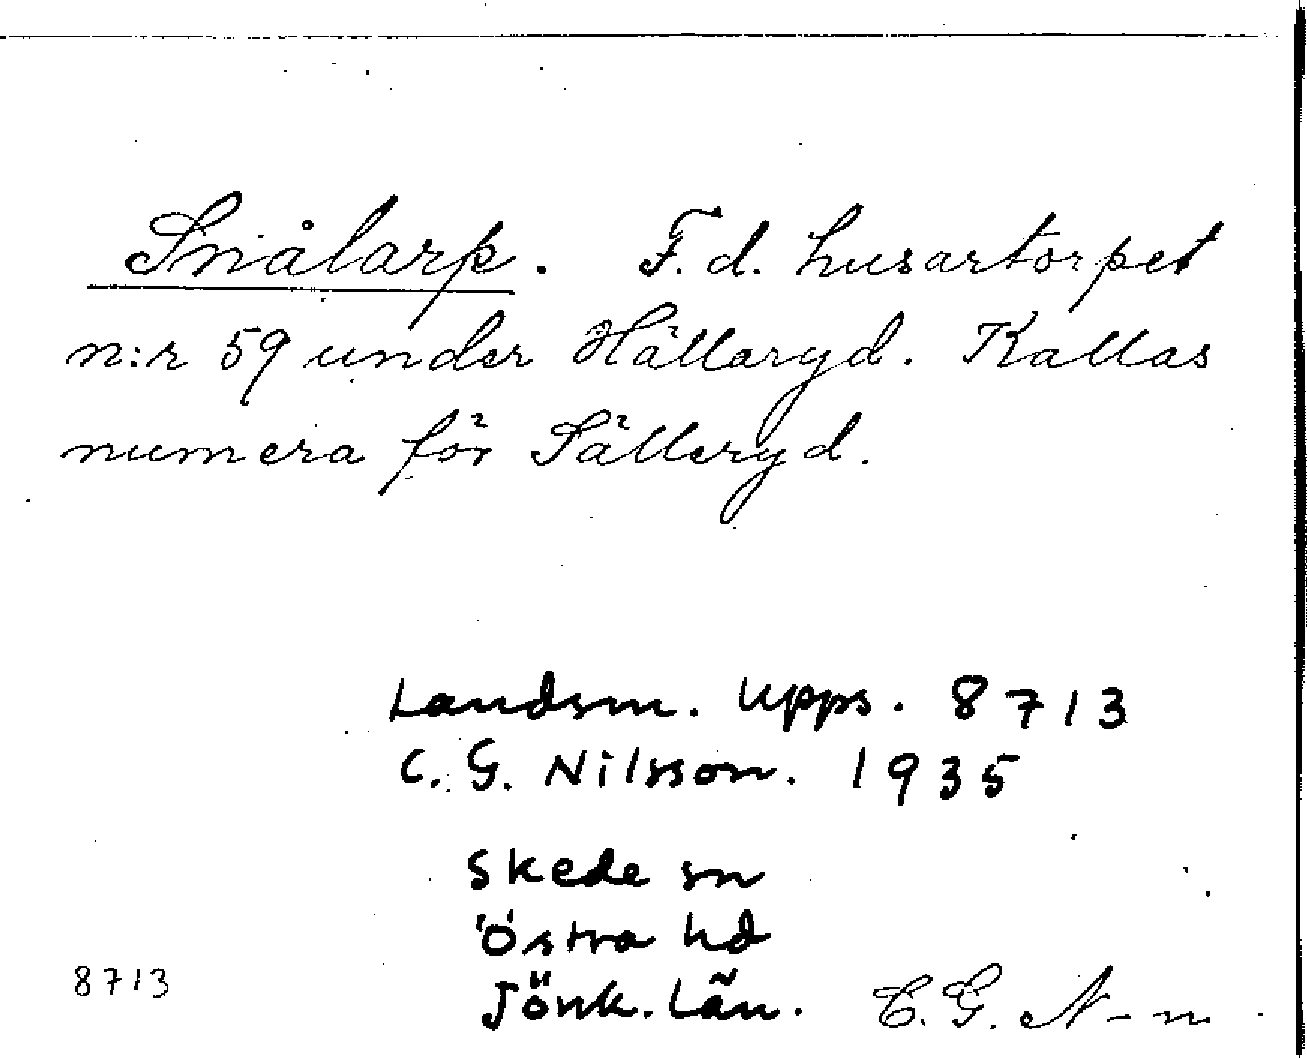 Snålarp. F.d. husartorpet
n:r 59 under Hälleryd. Kallas
numera för Sälleryd.
Landsm. Upps. 8713
C. G. Nilsson. 1935
Skede sn
Östra hd
8713 Jönk. län. C. G. N-n